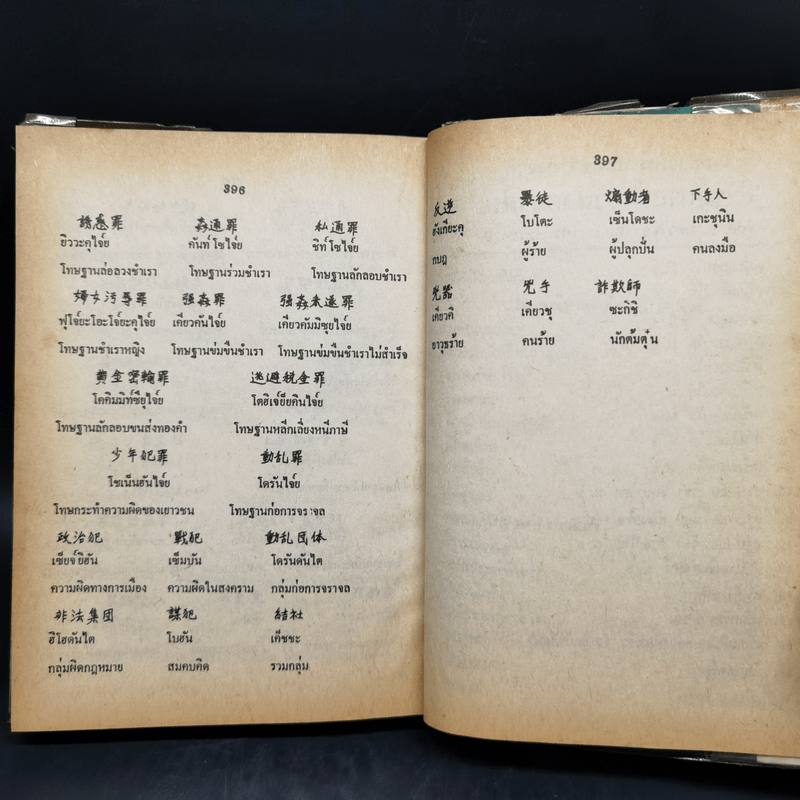 396
誘惑罪 姦通罪 私通罪
ยิววะคุไจ๋ย คันท์โซไจ๋ย ชิท์โซไจ๋ย
โทษฐานล่อลวงชำเรา โทษฐานร่วมชำเรา โทษฐานลักลอบชำเรา
婦女汚辱罪 强姦罪 强姦未遂罪
ฟุโจ๋ยะโอะโจ๋ยะคุไจ๋ย เคียวคันไจ๋ย เคียวคัมมิซุยไจ๋ย
โทษฐานชำเราหญิง โทษฐานข่มขืนชำเรา โทษฐานข่มขืนชำเราไม่สำเร็จ
黄金密輸罪 逃避税金罪
โคคิมมิท์ซียุไจ๋ย โตฮิเจ๋ย์ยคินไจ๋ย
โทษฐานลักลอบขนส่งทองคำ โทษฐานหลีกเลี่ยงหนีภาษี
少年犯罪 動乱罪
โชเน็นฮันไจ๋ย โดรันไจ๋ย
โทษกระทำความผิดของเยาวชน โทษฐานก่อการจราจล
政治犯 戰犯 動乱団体
เซ็ยจ๋ยิฮัน เซ็มบัน โดรันดันไต
ความผิดทางการเมือง ความผิดในสงคราม กลุ่มก่อการจราจล
非法集団 謀犯 結社
ฮิโฮดันไต โบฮัน เค็ชชะ
กลุ่มผิดกฎหมาย สมคบคิด รวมกลุ่ม
397
反逆 暴徒 煽動者 下手人
ฮังเกียะคุ โบโตะ เซ็นโดชะ เกะชุนิน
กบฏ ผู้ร้าย ผู้ปลุกปั่น คนลงมือ
兇器 兇手 詐欺師
เคียวคิ เคียวชุ ซะกิชิ
อาวุธร้าย คนร้าย นักต้มตุ๋น